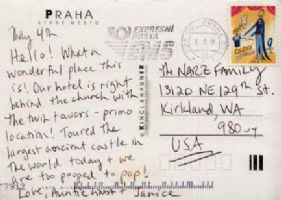 PRAHA
STARÉ MĚSTO
May 4th
Hello! What a
wonderful place this
is! Our hotel is right
behind the church with
the twin towers - primo
location! Toured the
largest ancient castle in
the world today + we
are too pooped to pop!
Love, Auntie Chris + Janice
EXPRESNÍ
POŠTA
EMS
© KING LAHAUNER
The NARZ Family
13120 NE 129th St.
Kirkland, WA
980
USA